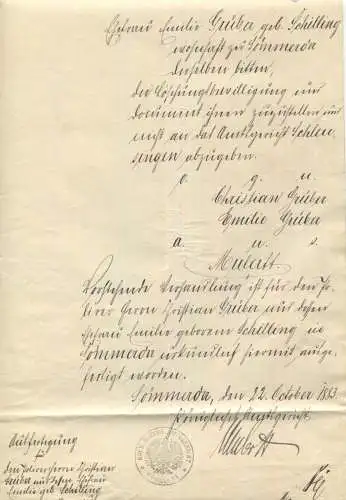 Ehefrau Emilie Gruba geb. Schilling
wohnhaft zu Sömmerda
dieselben bitten,
die Löschungsbewilligung nur
document ihnen zuzustellen und
nicht an das Amtsgericht Schleu-
singen abzugeben.
v. g. u.
Christian Gruba
Emilie Gruba
a. u. s.
Vorstehende Verhandlung ist für den
Herrn Christian Gruba und dessen
Ehefrau Emilie geborene Schilling in
Sömmerda urkundlich hiermit ausge-
fertigt worden.
Sömmerda, den 22. October 1883.
Königliches Amtsgericht
Ausfertigung
Herrn Christian
Gruba und dessen Ehefrau
Emilie geb. Schilling